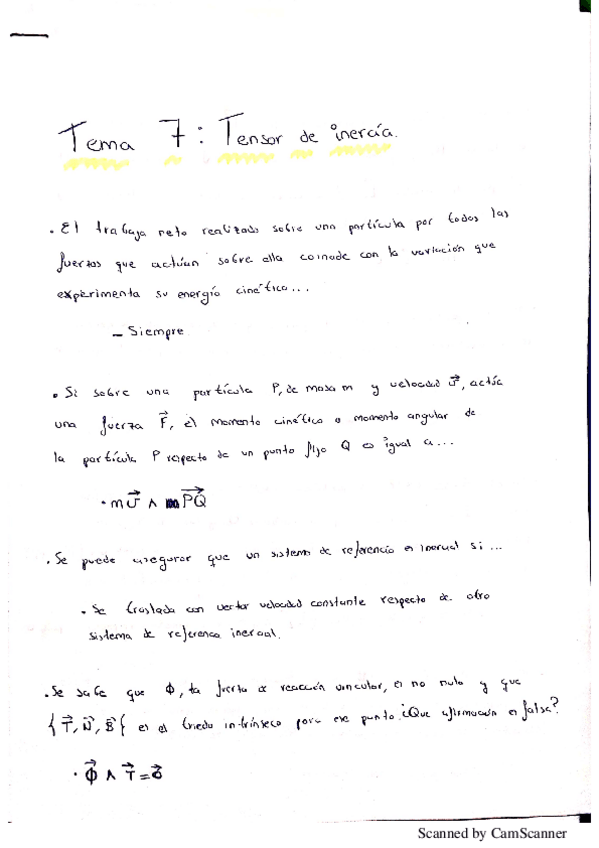 Tema 7: Tensor de inercia.
. El trabajo neto realizado sobre una partícula por todas las
fuerzas que actúan sobre ella coincide con la variación que
experimenta su energía cinética...
– Siempre
• Si sobre una partícula P, de masa m y velocidad v⃗, actúa
una fuerza F⃗, el momento cinético o momento angular de
la partícula P respecto de un punto fijo Q es igual a...
· m v⃗ ∧ PQ⃗
. Se puede asegurar que un sistema de referencia es inercial si ...
• Se traslada con vector velocidad constante respecto de otro
sistema de referencia inercial.
. Se sabe que Φ, la fuerza de reacción vincular, es no nula y que
{T⃗, N⃗, B⃗} es el triedro intrínseco para ese punto. ¿Que afirmación es falsa?
· Φ⃗ ∧ T⃗ = 0⃗
Scanned by CamScanner